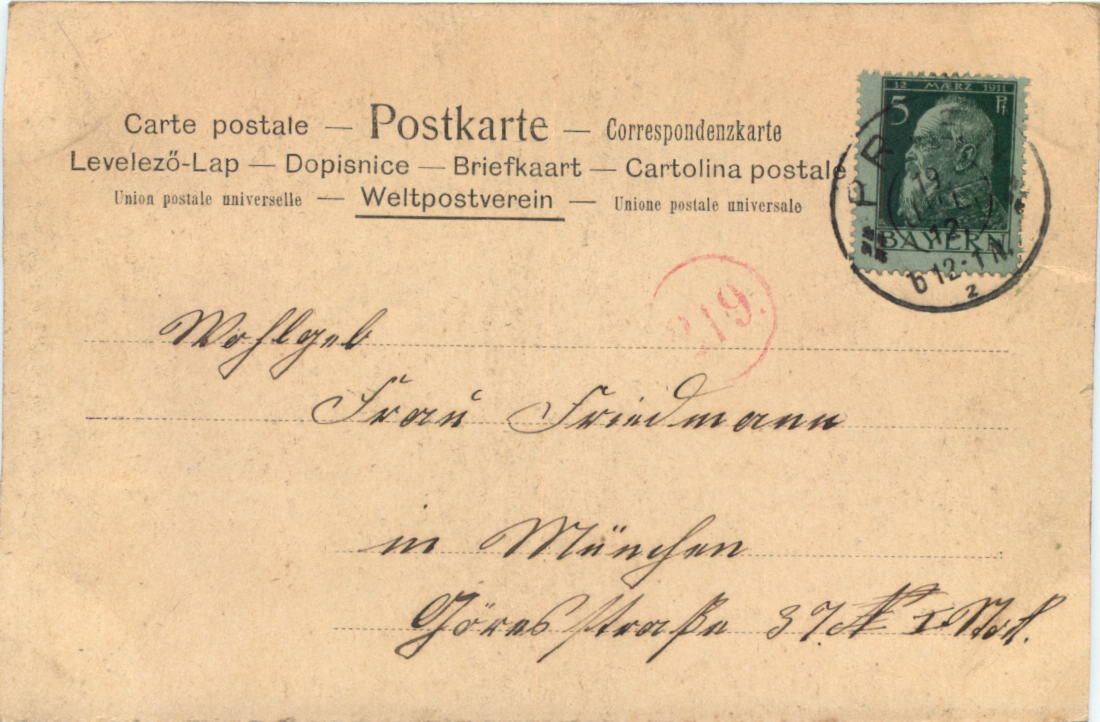 Carte postale — Postkarte — Correspondenzkarte
Levelező-Lap — Dopisnice — Briefkaart — Cartolina postale
Union postale universelle — Weltpostverein — Unione postale universale
12 MÆRZ 1911
5 Pf
BAYERN
PR
19
12
b 12-1 N.
2
219.
Wohlgeb
Frau Friedmann
in München
Göresstraße 37